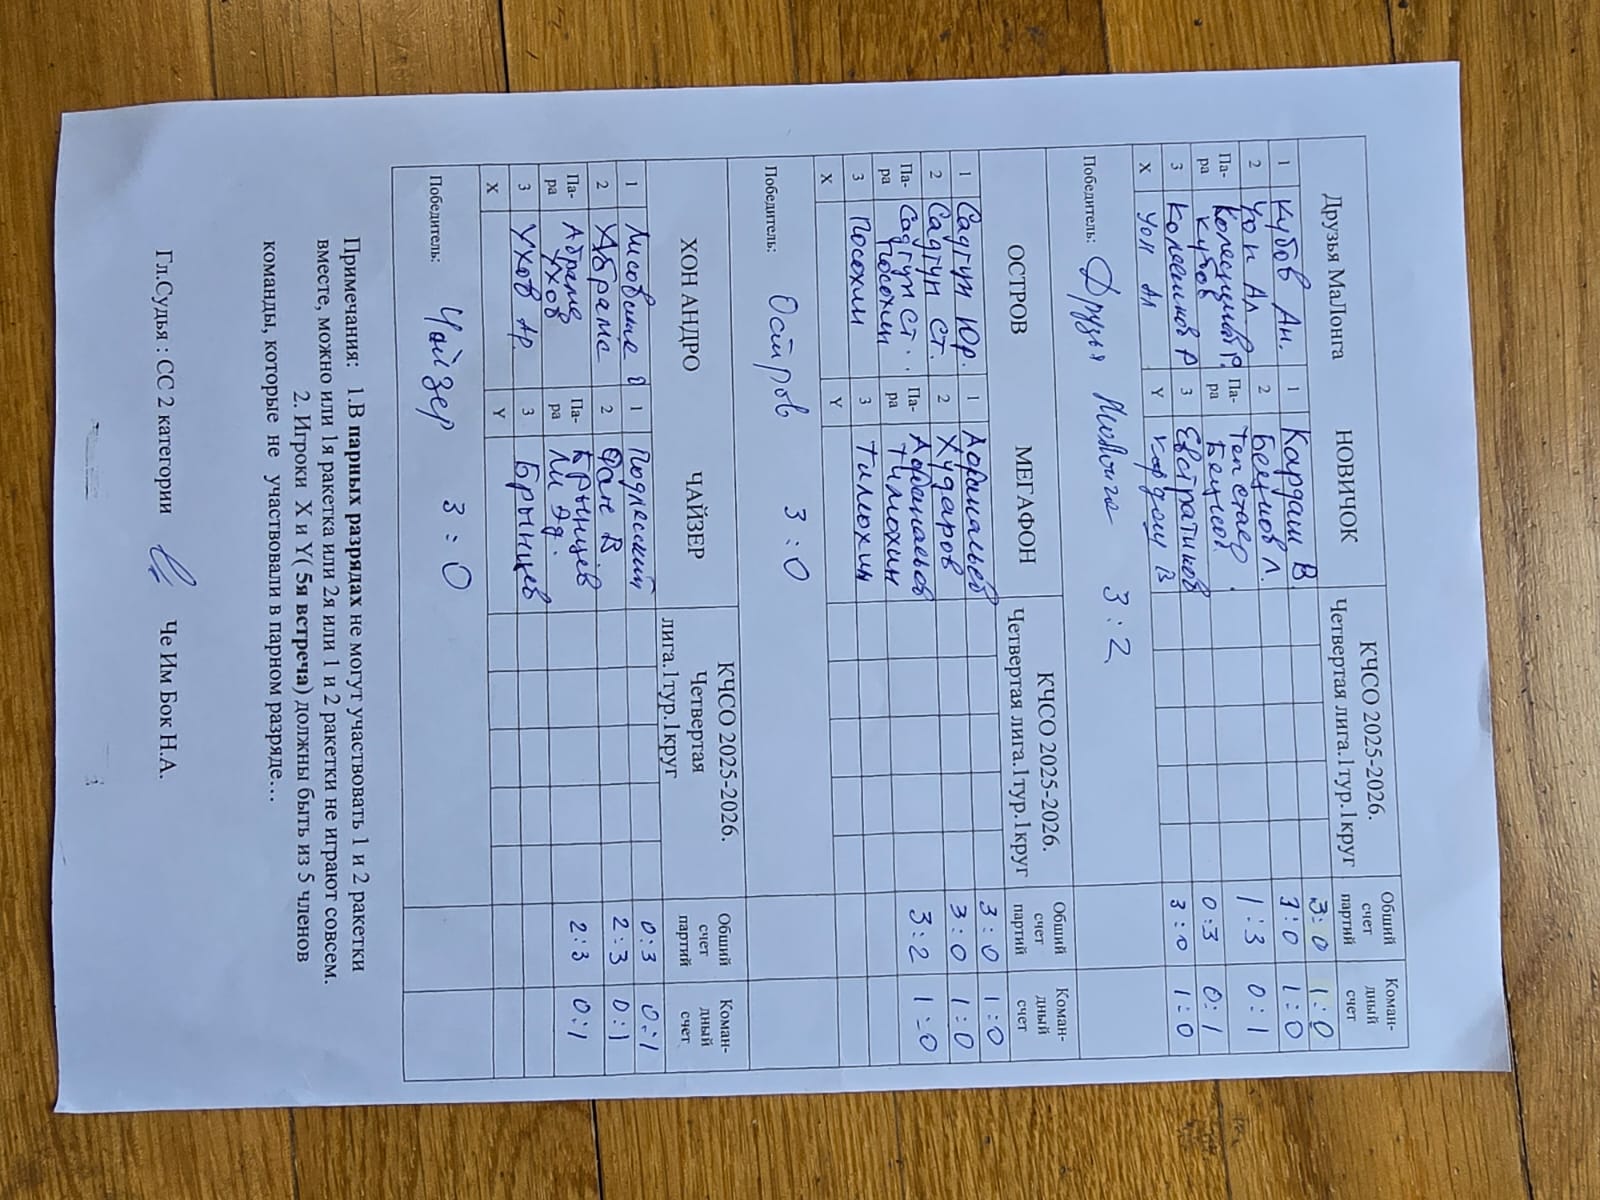 Друзья МаЛонга НОВИЧОК КЧСО 2025-2026. Четвертая лига.1тур.1круг Общий счет партий Коман-дный счет
1 Кубов Ан. 1 Кардаш В. 3:0 1:0
2 Уоп Ал 2 3:0 1:0
Па-ра Кубов Па-ра 1:3 0:1
3 Р 3 Евстратиков 0:3 0:1
X Ал Y Кардаш В 3:0 1:0
Победитель: Друзья Малонга 3:2
ОСТРОВ МЕГАФОН КЧСО 2025-2026. Четвертая лига.1тур.1круг Общий счет партий Коман-дный счет
1 Садтун Юр. 1 3:0 1:0
2 Садтун Ст. 2 Хударов 3:0 1:0
Па-ра Садтун Ст. Посохин Па-ра Тимохин 3:2 1:0
3 Посохин 3 Тимохин
X Y
Победитель: Остров 3:0
ХОН АНДРО ЧАЙЗЕР КЧСО 2025-2026. Четвертая лига.1тур.1круг Общий счет партий Коман-дный счет
1 1 Подлесский 0:3 0:1
2 Абрамс 2 Фан В. 2:3 0:1
Па-ра Абрамс Ухов Па-ра Брынцев Ли Эд. 2:3 0:1
3 Ухов Ар. 3 Брынцев
X Y
Победитель: Чайзер 3:0
Примечания: 1.В парных разрядах не могут участвовать 1 и 2 ракетки
вместе, можно или 1я ракетка или 2я или 1 и 2 ракетки не играют совсем.
2. Игроки X и Y( 5я встреча) должны быть из 5 членов
команды, которые не участвовали в парном разряде…
Гл.Судья : СС 2 категории Че Им Бок Н.А.